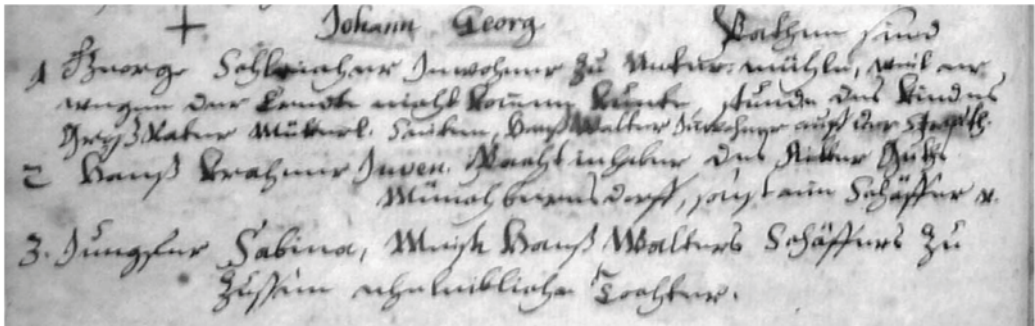 Johann Georg Pathen sind
1 George Schleicher Inwohner zu Untermühle, weil er,
wegen der Ernde nicht komen kunte, stunde des Kindes
Großvater Mütterl. Seiten, Hanß Walter Inwohner auf der
2 Hanß Krahmer Juven. Pachtinhaber des Ritter Guths
Münchbernsdorff, sonst ein Schäffer v.
3. Jungfer Sabina, Meist. Hanß Walters Schäffers zu
eheleibliche Tochter.